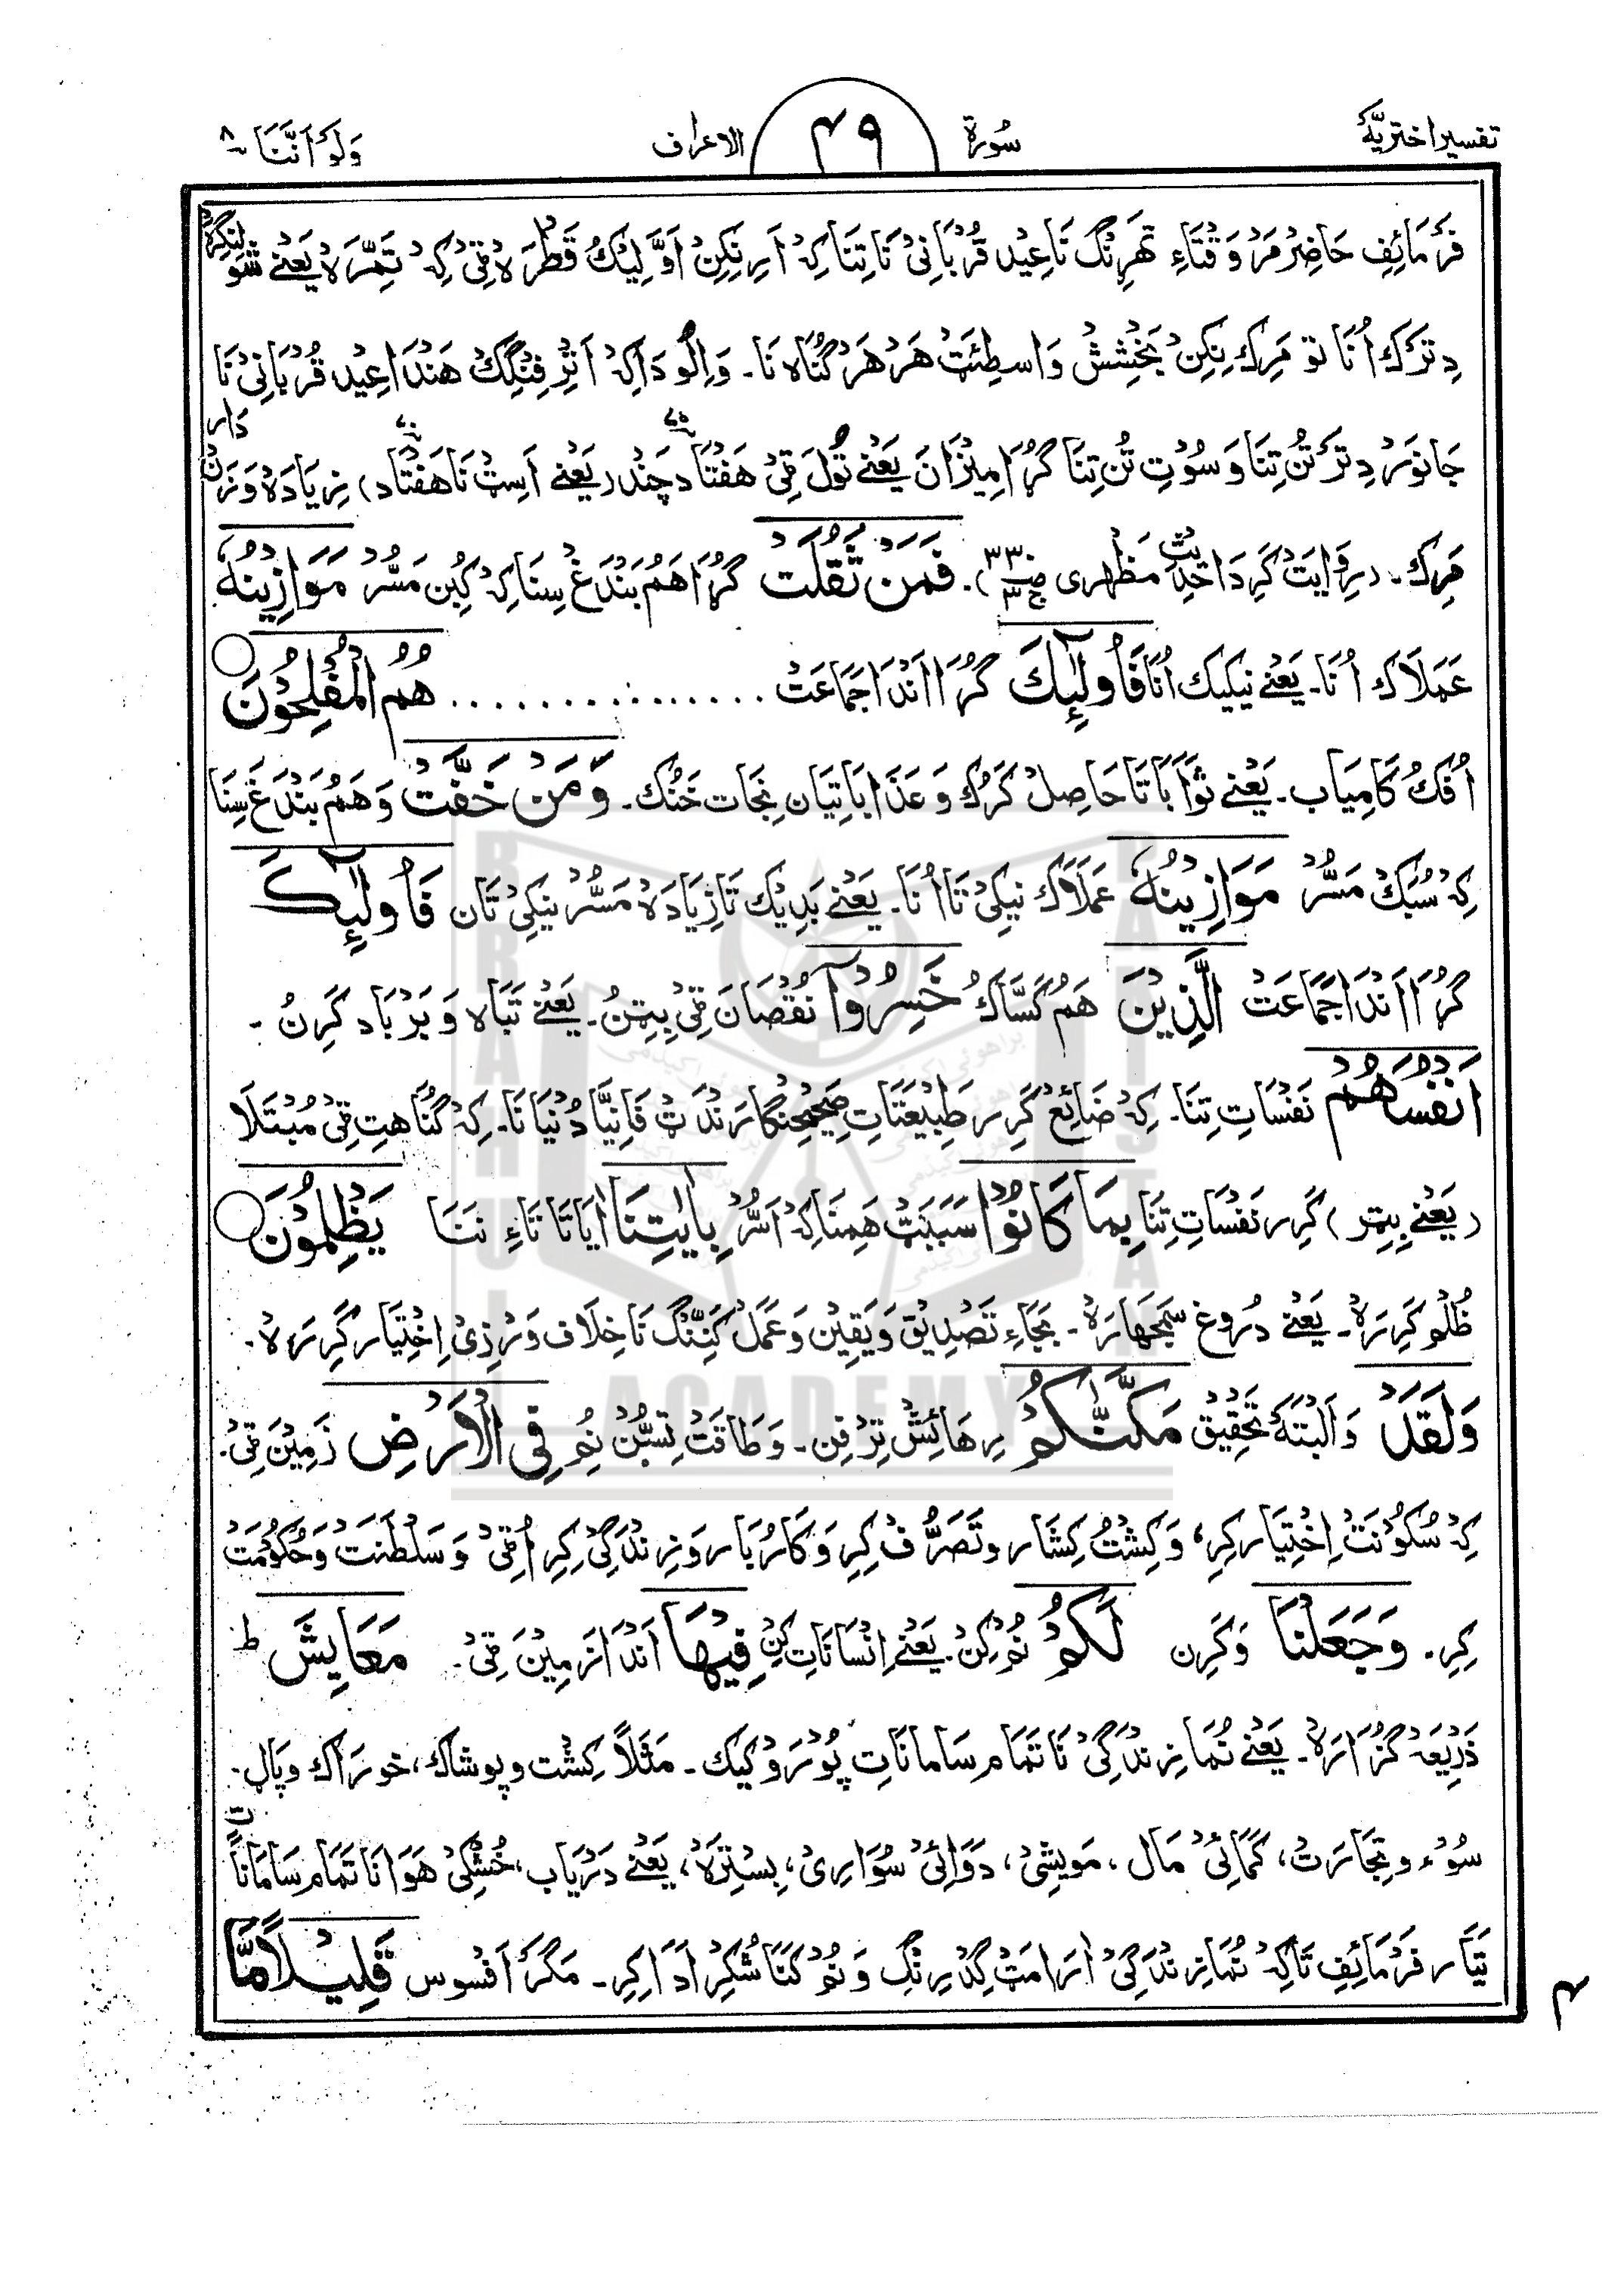 تفسیر اختریّہ
سُورۃ ۴۹ الاعراف
وَلَوْ اَنَّنَا ۸
فَرْمَائِفِ حَاضِرْ مَرْ وَقْتَاءِ تَھرِنْگ نَا عِیْد قُرْبَانِیْ نَا تِنَا کِہْ اَرِ نِکِنْ اَوَّلِیْکُ قَطْرَہ ٹِیْ کِہْ تَمِّرَہْ یَعْنِے شَوْلِنْگِرَہْ
دِتَرْک اُنَا تو مَرِک نِکِنْ بَخْشِشْ وَاسطِئَتْ هَرْ هَرْ گُنَاہ نَا۔ وَاِلُّو دَا کِہْ اَتِرْفِنْگِکْ هَنْدَا عِیْد قُرْبَانِیْ نَا
جَانْوَرْ دِتَرْ تُنْ تِنَا وَ سُوْتِ تُنْ تِنَا گُڑَا مِیْزَانَ یَعْنِے تُوْلَ ٹِیْ هَفْتَاد چَنْد (یَعْنِے اَسِٹْ نَا هَفْتَاد) زِیَادَہْ وَزَنْ دَار
مَرِک۔ (رِوَایَتْ گَرِ دَا حَدِیْث مَظْهری صـ۳۳۰ ج۳)۔ فَمَنْ ثَقُلَتْ گُڑَا هَمْ بَنْدَغْ سِنَا کِہْ کُبِن مَسُّرْ مَوَازِیْنُهٗ
عَمَلَاک اُنَا۔ یَعْنِے نِیْکِیْک اُنَا فَاُولٰٓئِكَ گُڑَا اَنْدَا جَمَاعَتْ . . . . . . . . . . . . . . . هُمُ الْمُفْلِحُوْنَ ○
اُفْکُ کَامِیَاب۔ یَعْنِے ثَوَابَا تَا حَاصِلْ کَرُکْ وَ عَذَابَاتِیَان نِجَات خَنُک۔ وَمَنْ خَفَّتْ وَ هَمْ بَنْدَغْ سِنَا
کِہْ سُبَکْ مَسُّرْ مَوَازِیْنُهٗ عَمَلَاک نِیْکِیْ تَا اُنَا۔ یَعْنِے بَدِیْک تَا زِیَادَہْ مَسُّرْ نِیْکِیْ تَان فَاُولٰٓئِكَ
گُڑَا اَنْدَا جَمَاعَتْ الَّذِیْنَ هَمْ کَسَّاکْ خَسِرُوْٓا نُقْصَانَ ٹِیْ بِیْمِنُ۔ یَعْنِے تَبَاہ وَ بَرْبَاد کَرِنُ ۔
اَنْفُسَهُمْ نَفْسَاتِ تِنَا۔ کِہْ ضَائِعْ کَرِر طَبِیْعَتَاتِ صَحِیْح رَنْد ٹْ فَانِیَّا دُنْیَا نَا۔ کِہْ گُنَاهتِ ٹِیْ مُبْتَلَا
(یَعْنِے بِیتِر) کَرِر نَفْسَاتِ تِنَا بِمَا كَانُوْا سَبَبَتْ هَمِنَا کِہْ اَسُّرْ بِاٰیٰتِنَا اٰیَاتَا تَاءِ نَنَا یَظْلِمُوْنَ ○
ظُلْم کَرِرَہْ۔ یَعْنِے دُرُوغ سَمْجَھارَہْ۔ بَجَاءِ تَصْدِیْق وَ یَقِیْن وَ عَمَلْ کَنِنْگ نَا خِلَاف وَرْزِیْ اِخْتِیَار کَرِرَہْ۔
وَلَقَدْ وَ اَلْبَتَّہْ تَحْقِیْق مَكَّنّٰكُمْ رِهَائِشْ تِرْفِن۔ وَ طَاقَتْ تِسُّنْ نُمِ فِی الْاَرْضِ زَمِیْنَ ٹِیْ۔
کِہْ سُکُوْنَتْ اِخْتِیَار کِرِ، وَ کِشْتُ کِشَار و تَصَرُّفْ کِرِ وَ کَارُبَار وَ زِنْدَگِیْ کِرِ اُ ٹِیْ وَ سَلْطَنَتْ وَ حُکُوْمَت
کِرِ۔ وَجَعَلْنَا وَ کَرِن لَكُمْ نُمْ کِنْ۔ یَعْنِے اِنْسَانَاتِ کِنْ فِیْهَا اَنْدَا زَمِیْنَ ٹِیْ۔ مَعَایِشَ ؕ
ذَرِیْعَہْ گُزَارَہ۔ یَعْنِے نُمَا زِنْدَگِیْ نَا تَمَام سَامَانَاتِ پُوْرَو کَیْک۔ مَثَلًا کِشْت و پوشاک، خوراک و پَال۔
سُوْء و تِجَارَتْ، کَمَائِیْ مَال، مَوِیشِیْ، دَوَائِیْ سُوَارِیْ، بِسْتِرَہْ، یَعْنِے دَرْیَاب، خُشْکِیْ هَوَا نَا تَمَام سَامَانَاتِ
تَیَّار فَرْمَائِفِ تَاکِہْ نُمَا زِنْدَگِیْ اٰرَامَتْ گِدْرِنْگِ وَ نُمْ کَنَا شُکِرْ اَدَا کِرِ۔ مَگَرْ اَفْسوس قَلِیْلًا مَّا